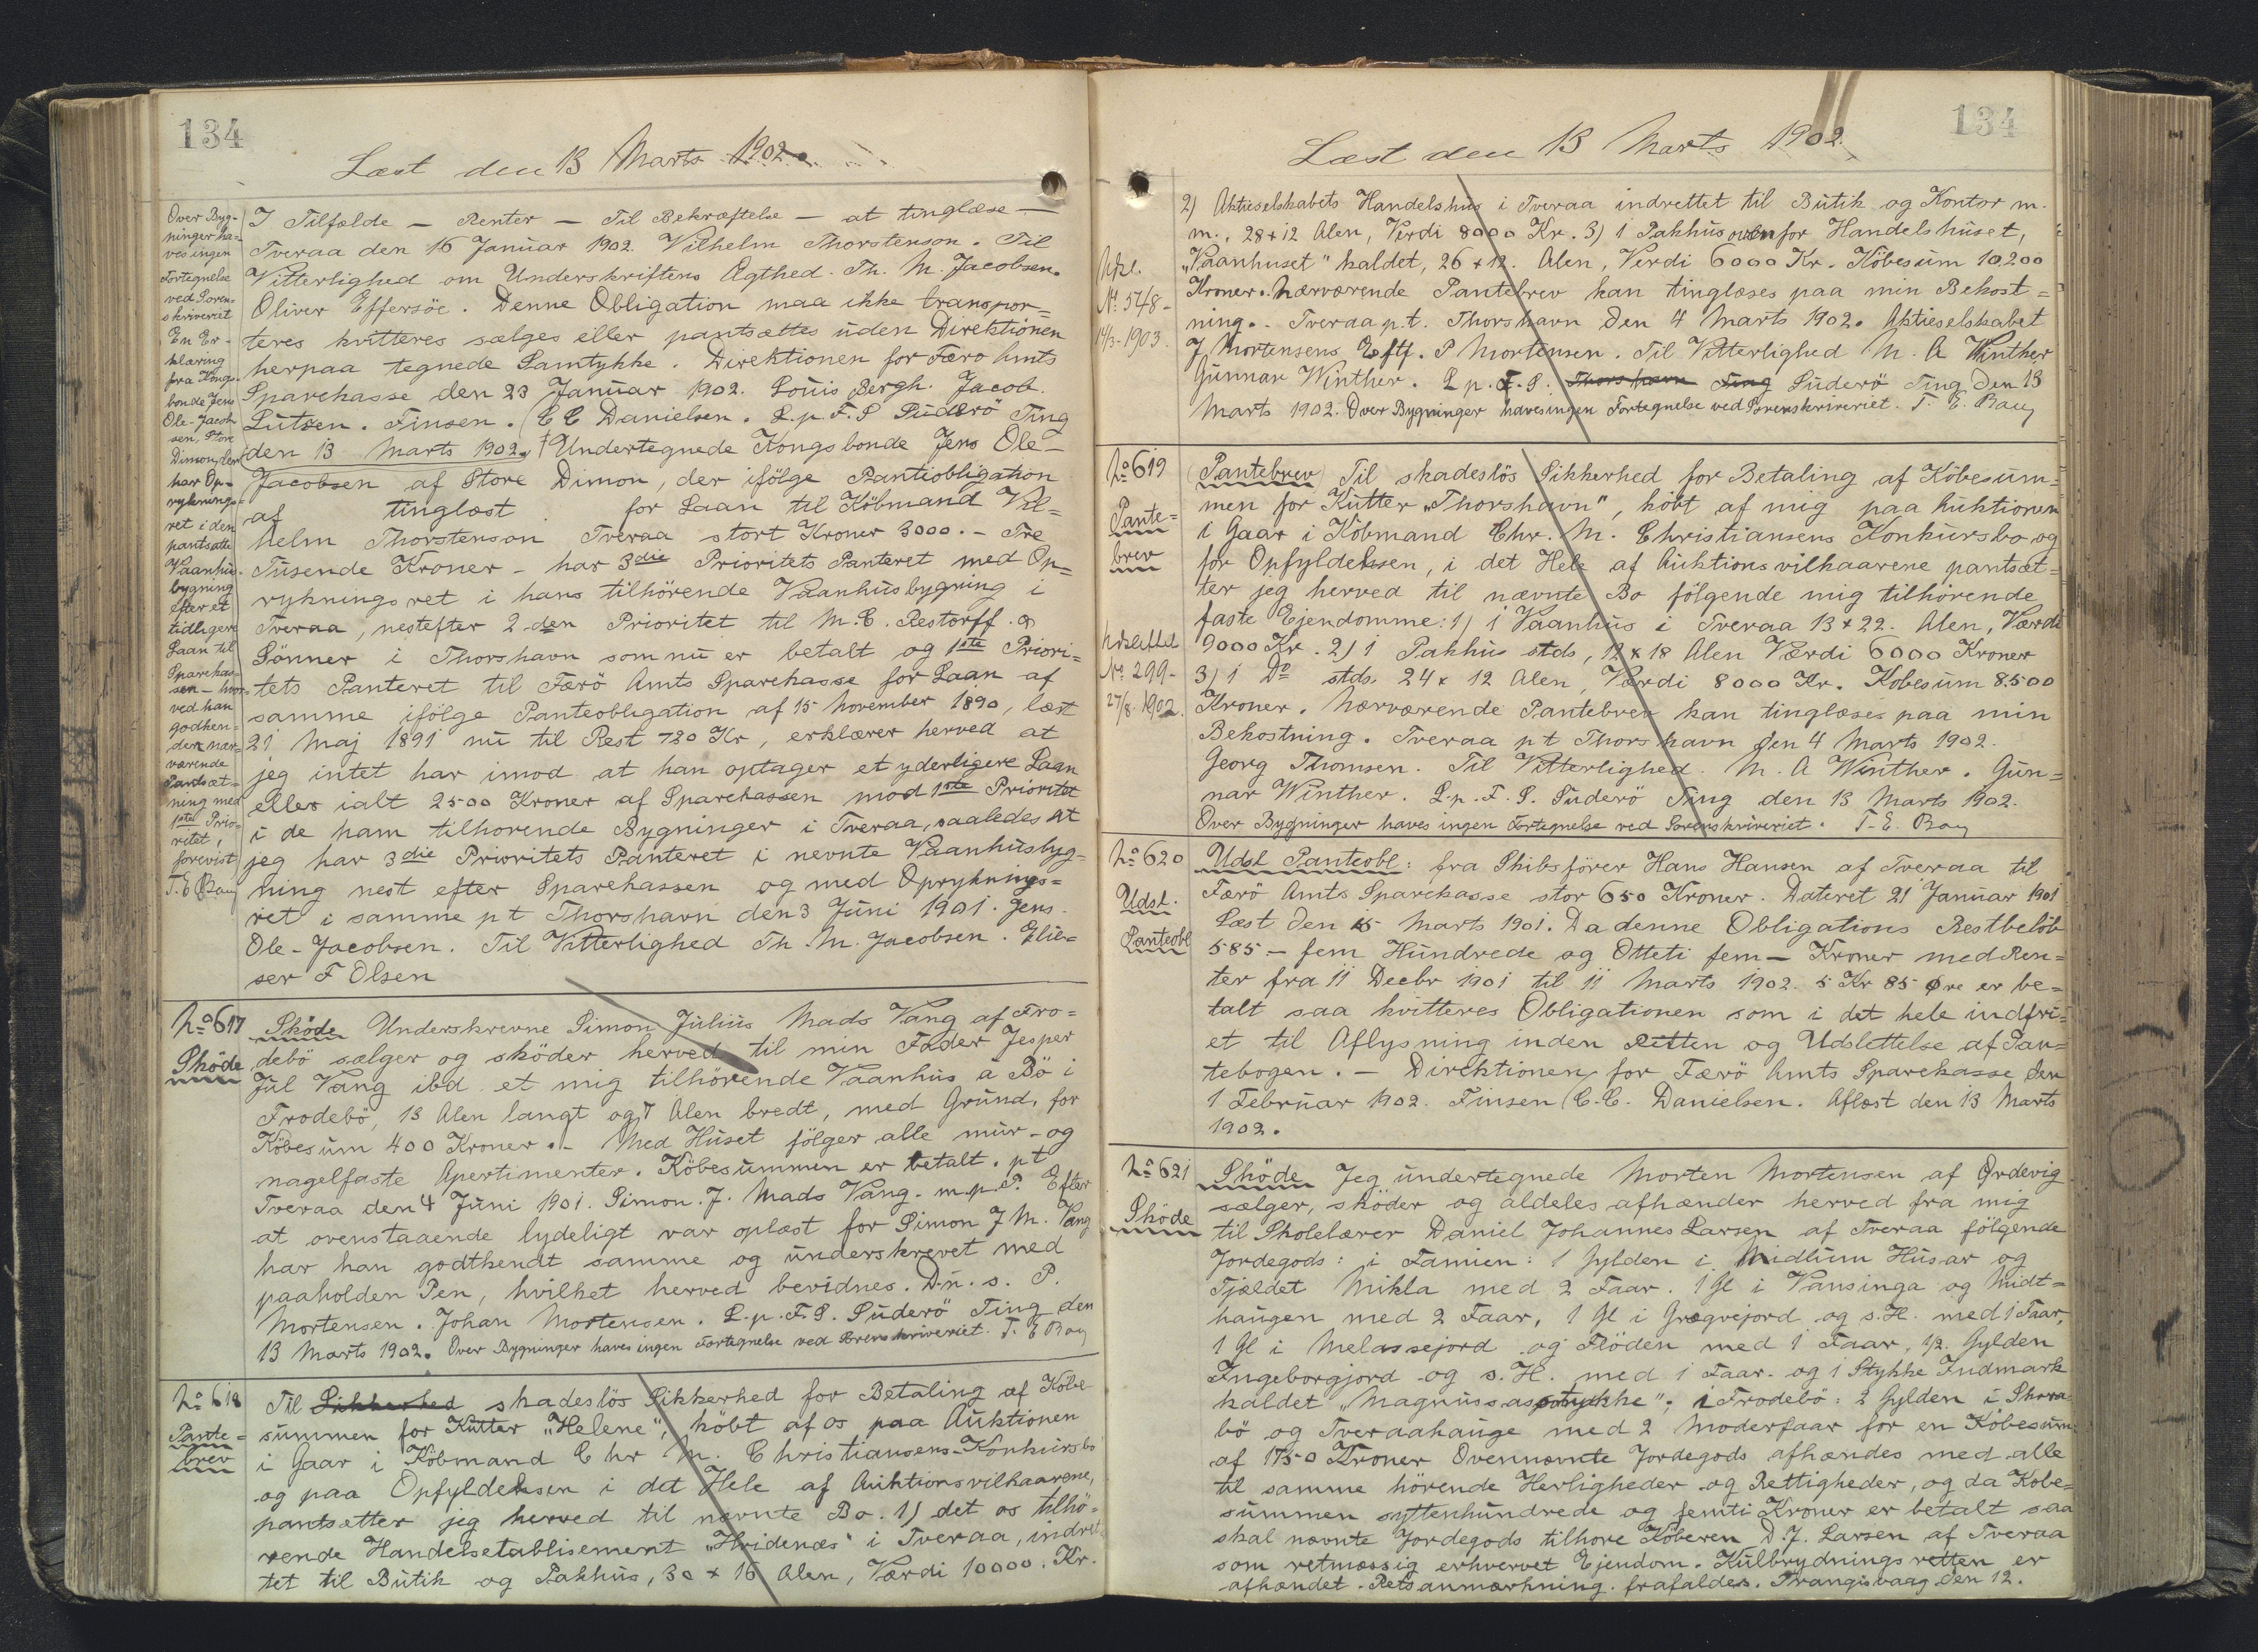 134
Læst den 13 Marts 1902.
Over Byg-
ninger ha-
ves ingen
Fortegnelse
ved Soren-
skriveriet
En Er-
klæring
fra Kongs-
bonde Jens
Ole-Jacob
sen, Store
Dimon, der
har Op-
ryknings-
ret i den
pantsatte
Vaanhus-
bygning
efter et
tidligere
Laan til
Sparekas-
sen - hvor-
ved han
godken-
der nær-
værende
Pantsæt-
ning med
1ste Prio-
ritet,
forevist
T. E. Bay
I Tilfælde - Renter - Til Bekræftelse - at tinglæse -
Tveraa den 16 Januar 1902. Vilhelm Thorstenson. Til
Vitterlighed om Underskriftens Ægthed. Th. M. Jacobsen.
Oliver Effersöe. Denne Obligation maa ikke transpor-
teres kvitteres sælges eller pantsættes uden Direktionen
herpaa tegnede Samtykke. Direktionen for Færo Amts
Sparekasse den 23 Januar 1902. Louis Bergh. Jacob
Lutzen. Finsen. C C Danielsen. L. p. F. S Suderö Ting
den 13 Marts 1902. Undertegnede Kongsbonde Jens Ole-
Jacobsen af Store Dimon, der ifölge Pantiobligation
af tinglæst for Laan til Köbmand Vil=
helm Thorstenson Tveraa stort Kroner 3000. - Tre
Tusende Kroner - har 3die Prioritets Panteret med Op=
rykningsret i hans tilhörende Vaanhusbygning i
Tveraa, nestefter 2-den Prioritet til M. C. Restorff. &
Sönner i Thorshavn som nu er betalt og 1ste Priori=
tets Panteret til Færö Amts Sparekasse for Laan af
samme ifölge Panteobligation af 15 November 1890, læst
21 Maj 1891 nu til Rest 720 Kr, erklærer herved at
jeg intet har imod at han optager et yderligere Laan
eller ialt 2500 Kroner af Sparekassen mod 1ste Prioritet
i de ham tilhorende Bygninger i Tveraa, saaledes at
jeg har 3die Prioritets Panteret i nevnte Vaanhusbyg-
ning nest efter Sparekassen og med Opryknings=
ret i samme p t Thorshavn den 3 Juni 1901. Jens-
Ole-Jacobsen. Til Vitterlighed Th. M. Jacobsen. Elie=
ser F Olsen
No 617
Sköde
Sköde Underskrevne Simon Julius Mads Vang af Fro=
debö sælger og sköder herved til min Fader Jesper
Jul Vang ibd. et mig tilhörende Vaanhus a Bö i
Frodebö, 13 Alen langt og 7 Alen bredt, med Grund, for
Köbesum 400 Kroner. - Med Huset fölger alle mur- og
nagelfaste Apertimenter. Köbesummen er betalt. pt
Tveraa den 4 Juni 1901. Simon. J. Mads Vang. m. p. P. Efter
at ovenstaaende lydeligt var oplæst for Simon J M. Vang
har han godtkendt samme og underskrevet med
paaholden Pen, hvilket herved bevidnes. D. u. s. P.
Mortensen. Johan Mortensen. L. p. F. S. Suderö Ting den
13 Marts 1902. Over Bygninger haves ingen Fortegnelse ved Sorenskriveriet. T. E Bay
No 618
Pante=
brev
Til Sikkerhed skadeslös Sikkerhed for Betaling af Köbe-
summen for Kutter „Helene", köbt af os paa Auktionen
i Gaar i Köbmand Chr M. Christiansens-Konkursbo
og paa Opfyldelsen i det Hele af Auktionsvilkaarene,
pantsetter jeg herved til nævnte Bo. 1) det os tilhö-
rende Handelsetablisement „Hvidenæs" i Tveraa, indret-
tet til Butik og Pakhus, 30 x 16 Alen, Værdi 10000. Kr.
134
Læst den 13 Marts 1902.
Udsl.
No 548-
14/3-1903.
2) Aktieselskabets Handelshus i Tveraa indrettet til Butik og Kontor m.
m., 28 x 12 Alen, Verdi 8000 Kr. 3) 1 Pakhus ovenfor Handelshuset,
„Vaanhuset" kaldet, 26 x 12. Alen, Verdi 6000 Kr. Köbesum 10200
Kroner. Nærværende Pantebrev kan tinglæses paa min Bekost=
ning. - Tveraa p. t. Thorshavn den 4 Marts 1902. Aktieselskabet
J Mortensens Eftf. P Mortensen. Til Vitterlighed M. A Winther
Gunnar Winther. L p. F. S. Thorshavn Ting Suderö Ting den 13
Marts 1902. Over Bygninger haves ingen Fortegnelse ved Sorenskriveriet. T. E. Bay
No 619
Pante=
brev
Udslettet
No 299-
27/8-1902.
Pantebrev Til skadeslös Sikkerhed for Betaling af Köbesum=
men for Kutter „Thorshavn", köbt af mig paa Auktionen
i Gaar i Köbmand Chr. M. Christiansens Konkursbo og
for Opfyldelsen, i det Hele af Auktionsvilkaarene pantsæt=
ter jeg herved til nævnte Bo fölgende mig tilhörende
faste Ejendomme: 1) 1 Vaanhus i Tveraa 13 x 22. Alen, Værdi
9000 Kr. 2) 1 Pakhus stds, 12 x 18 Alen Værdi 6000 Kroner
3) 1 Do stds. 24 x 12 Alen, Værdi 8000 Kr. Kobesum 8500
Kroner. Nærværende Pantebrev kan tinglæses paa min
Bekostning. Tveraa p t Thorshavn den 4 Marts 1902.
Georg Thomsen. Til Vitterlighed. M. A Winther. Gun=
nar Winther. L. p. F. S. Suderö Ting den 13 Marts 1902.
Over Bygninger haves ingen Fortegnelse ved Sorenskriveriet. T. E. Bay
No 620
Udsl.
Panteobl
Udsl Panteobl: fra Skibsförer Hans Hansen af Tveraa til
Færö Amts Sparekasse stor 650 Kroner. Dateret 21 Januar 1901
Læst den 15 Marts 1901. Da denne Obligations Restbelöb
585 - fem Hundrede og Otteti fem - Kroner med Ren=
ter fra 11 Decbr 1901 til 11 Marts 1902. 5 Kr 85 Øre er be=
talt saa kvitteres Obligationen som i det hele indfri=
et til Aflysning inden Retten og Udslettelse af Pan=
tebogen. - Direktionen for Færö Amts Sparekasse den
1 Februar 1902. Finsen C. C. Danielsen. Aflæst den 13 Marts
1902.
No 621
Sköde
Sköde Jeg undertegnede Morten Mortensen af Ørdevig
sælger, sköder og aldeles afhænder herved fra mig
til Skolelærer Daniel Johannes Larsen af Tveraa fölgende
Jordegods: i Famien: 1 Gylden i Midlum Husar og
Fjældet Mikla med 2 Faar. 1 Gl i Vansinga og Midt=
haugen med 2 Faar, 1 Gl i Grøgvejord og s. H. med 1 Faar,
1 Gl i Melassejord og Flöden med 1 Faar, 1/2. Gylden
Ingeborgjord og s. H. med 1 Faar. og 1 Stykke Indmark
kaldet „Magnussasstykke"; i Frodebö: 2 Gylden i Skora
bö og Tveraahauge med 2 Moderfaar for en Köbesum
af 1750 Kroner Ovennævnte Jordegods afhændes med alle
til samme hörende Herligheder og Rettigheder, og da Kobe=
summen syttenhundrede og femti Kroner er betalt saa
skal nævnte Jordegods tilhore Köberen D. J. Larsen af Tveraa
som retmæssig erhvervet Ejendom. Kulbrydningsretten er
afhændet. Retsanmærkning. frafaldes. Trangisvaag den 12.